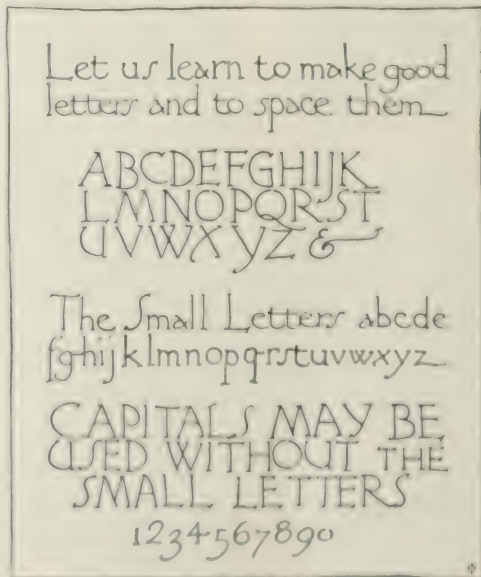 Let us learn to make good
letters and to space them
ABCDEFGHIJK
LMNOPQRST
UVWXYZ &
The Small Letters abcde
fghijklmnopqrstuvwxyz
CAPITALS MAY BE
USED WITHOUT THE
SMALL LETTERS
1234567890